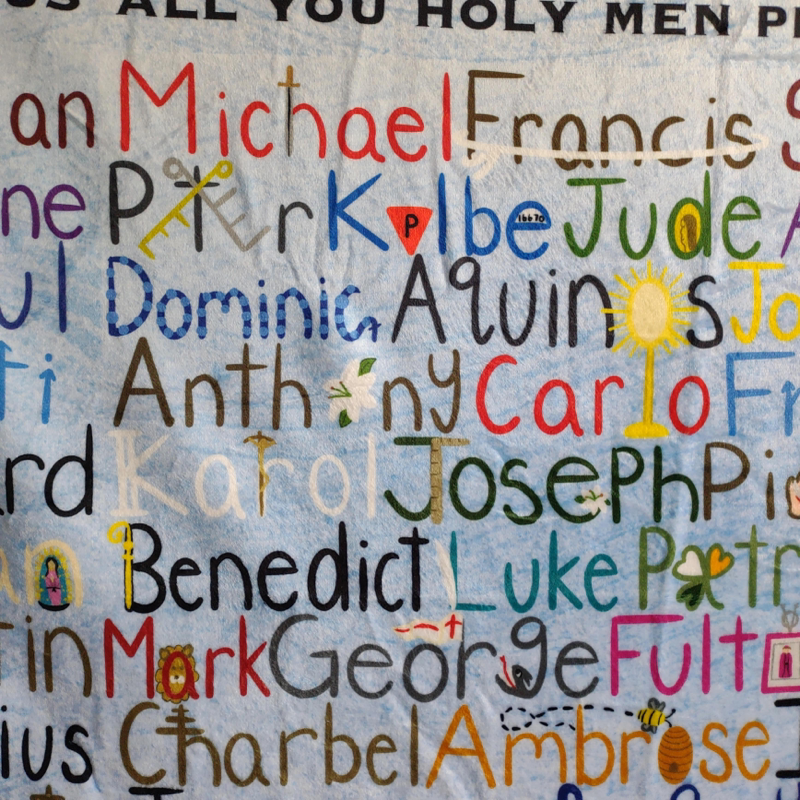 US ALL YOU HOLY MEN
an Michael Francis
ne Peter Kolbe Jude
ul Dominic Aquinas Jo
ti Anthony Carlo Fr
rd Karol Joseph Pio
an Benedict Luke Patr
tin Mark George Fult
ius Charbel Ambrose
P
16670